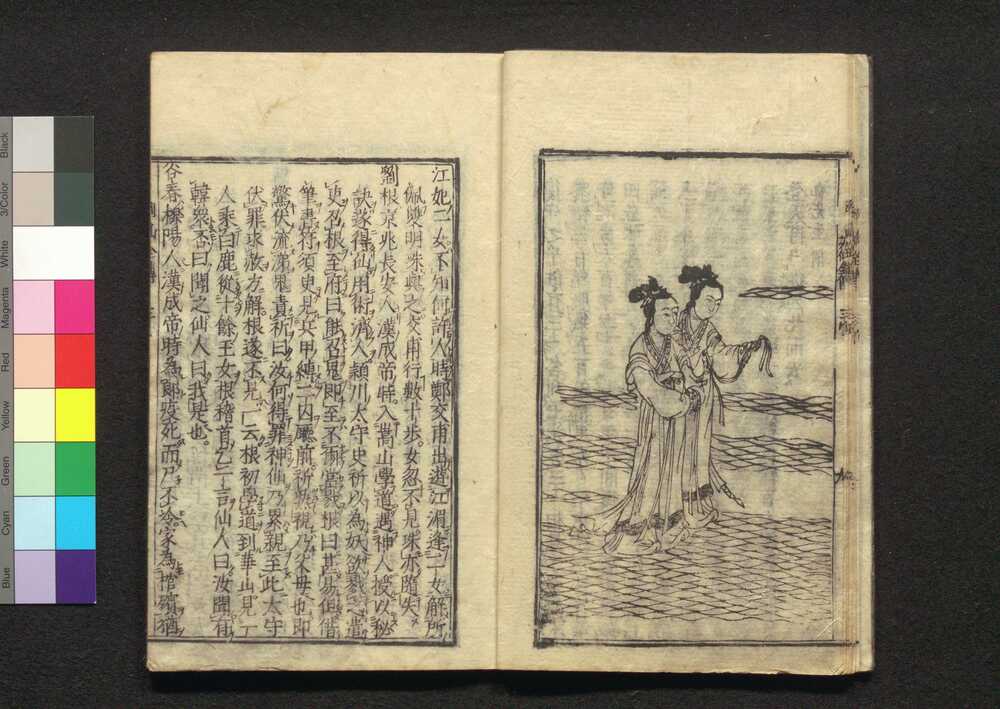 江妃二女不知何許人時鄭交甫出遊江湄逢二女解所
佩與明珠與之交甫行數十步女忽不見珠亦隨失
劉根京兆長安人漢成帝時入嵩山學道遇神人授以秘
訣遂得仙用術濟人潁川太守史祈以為妖欲戮之遣
吏召根至府曰能召鬼即至不爾當戮根曰甚易但借
筆書符須更見兵甲縛二囚廳前祈熟視乃父母也即
驚伏流涕鬼責祈曰汝何得罪神仙乃累親至此太守
伏罪求救方解根遂不見一云根初學道到華山見一
人乘白鹿從十餘玉女根稽首乞一言仙人曰汝聞有
韓眾否曰聞之仙人曰我是也
谷春櫟陽人漢成帝時為郎疫死而乃不冷家為棺殯猶
Black
3/Color
White
Magenta
Red
Yellow
Green
Cyan
Blue